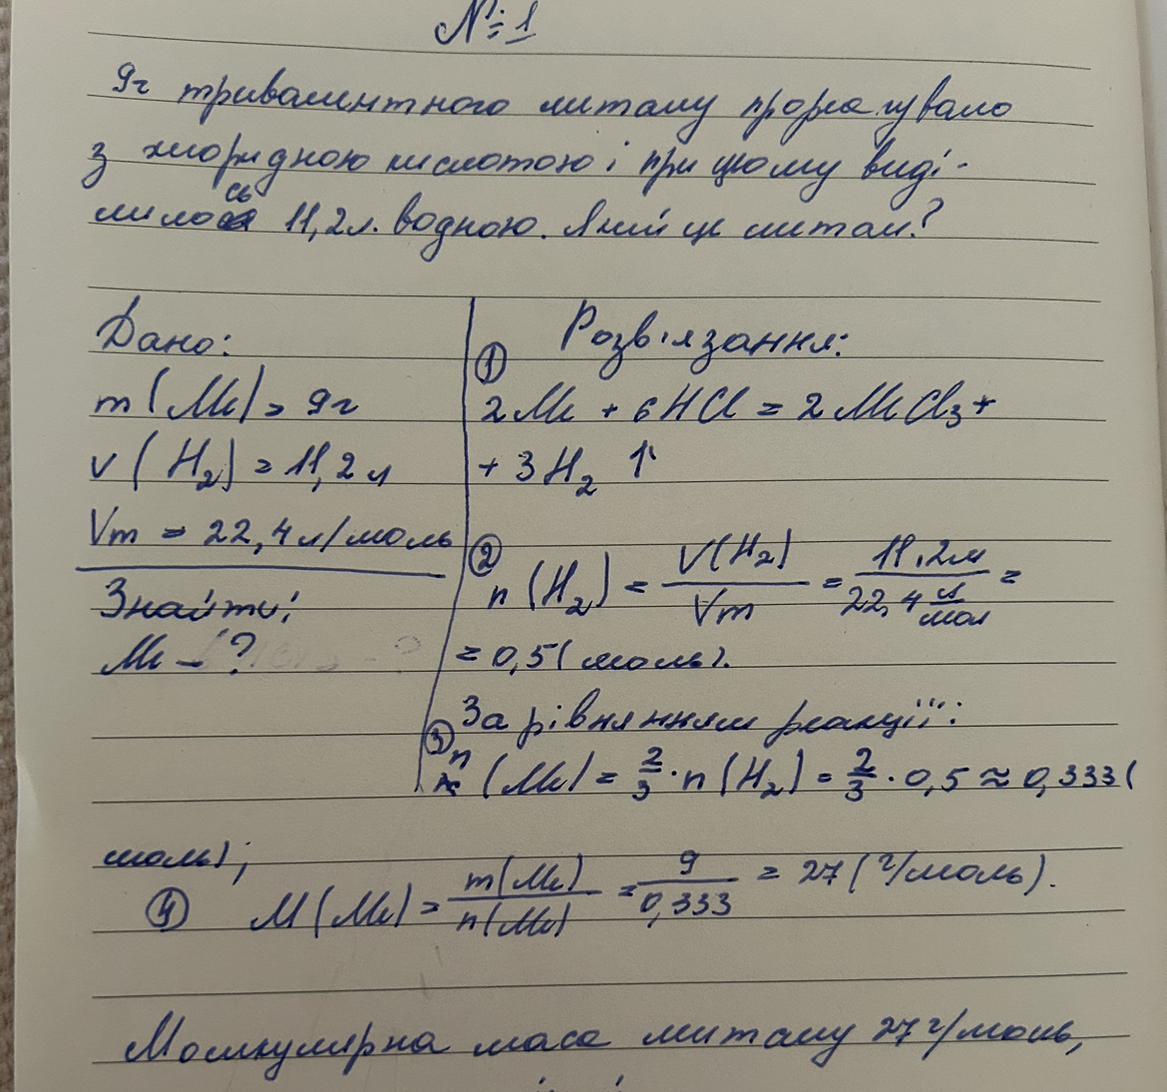 № 1
9г тривалентного металу прореагувало
з хлоридною кислотою і при цьому виді-
лилось 11,2л. водною. Який це метал?
Дано:
m(Me) = 9г
v(H₂) = 11,2 л
Vm = 22,4 л/моль
Знайти:
Me - ?
Розв'язання:
① 2Me + 6HCl = 2MeCl₃ +
+ 3H₂ ↑
② n(H₂) = V(H₂)/Vm = 11,2л/22,4 л/мол =
= 0,5 (моль).
③ За рівнянням реакції:
n(Me) = 2/3 · n(H₂) = 2/3 · 0,5 ≈ 0,333 (
моль);
④ M(Me) = m(Me)/n(Me) = 9/0,333 = 27 (г/моль).
Молекулярна маса металу 27 г/моль,